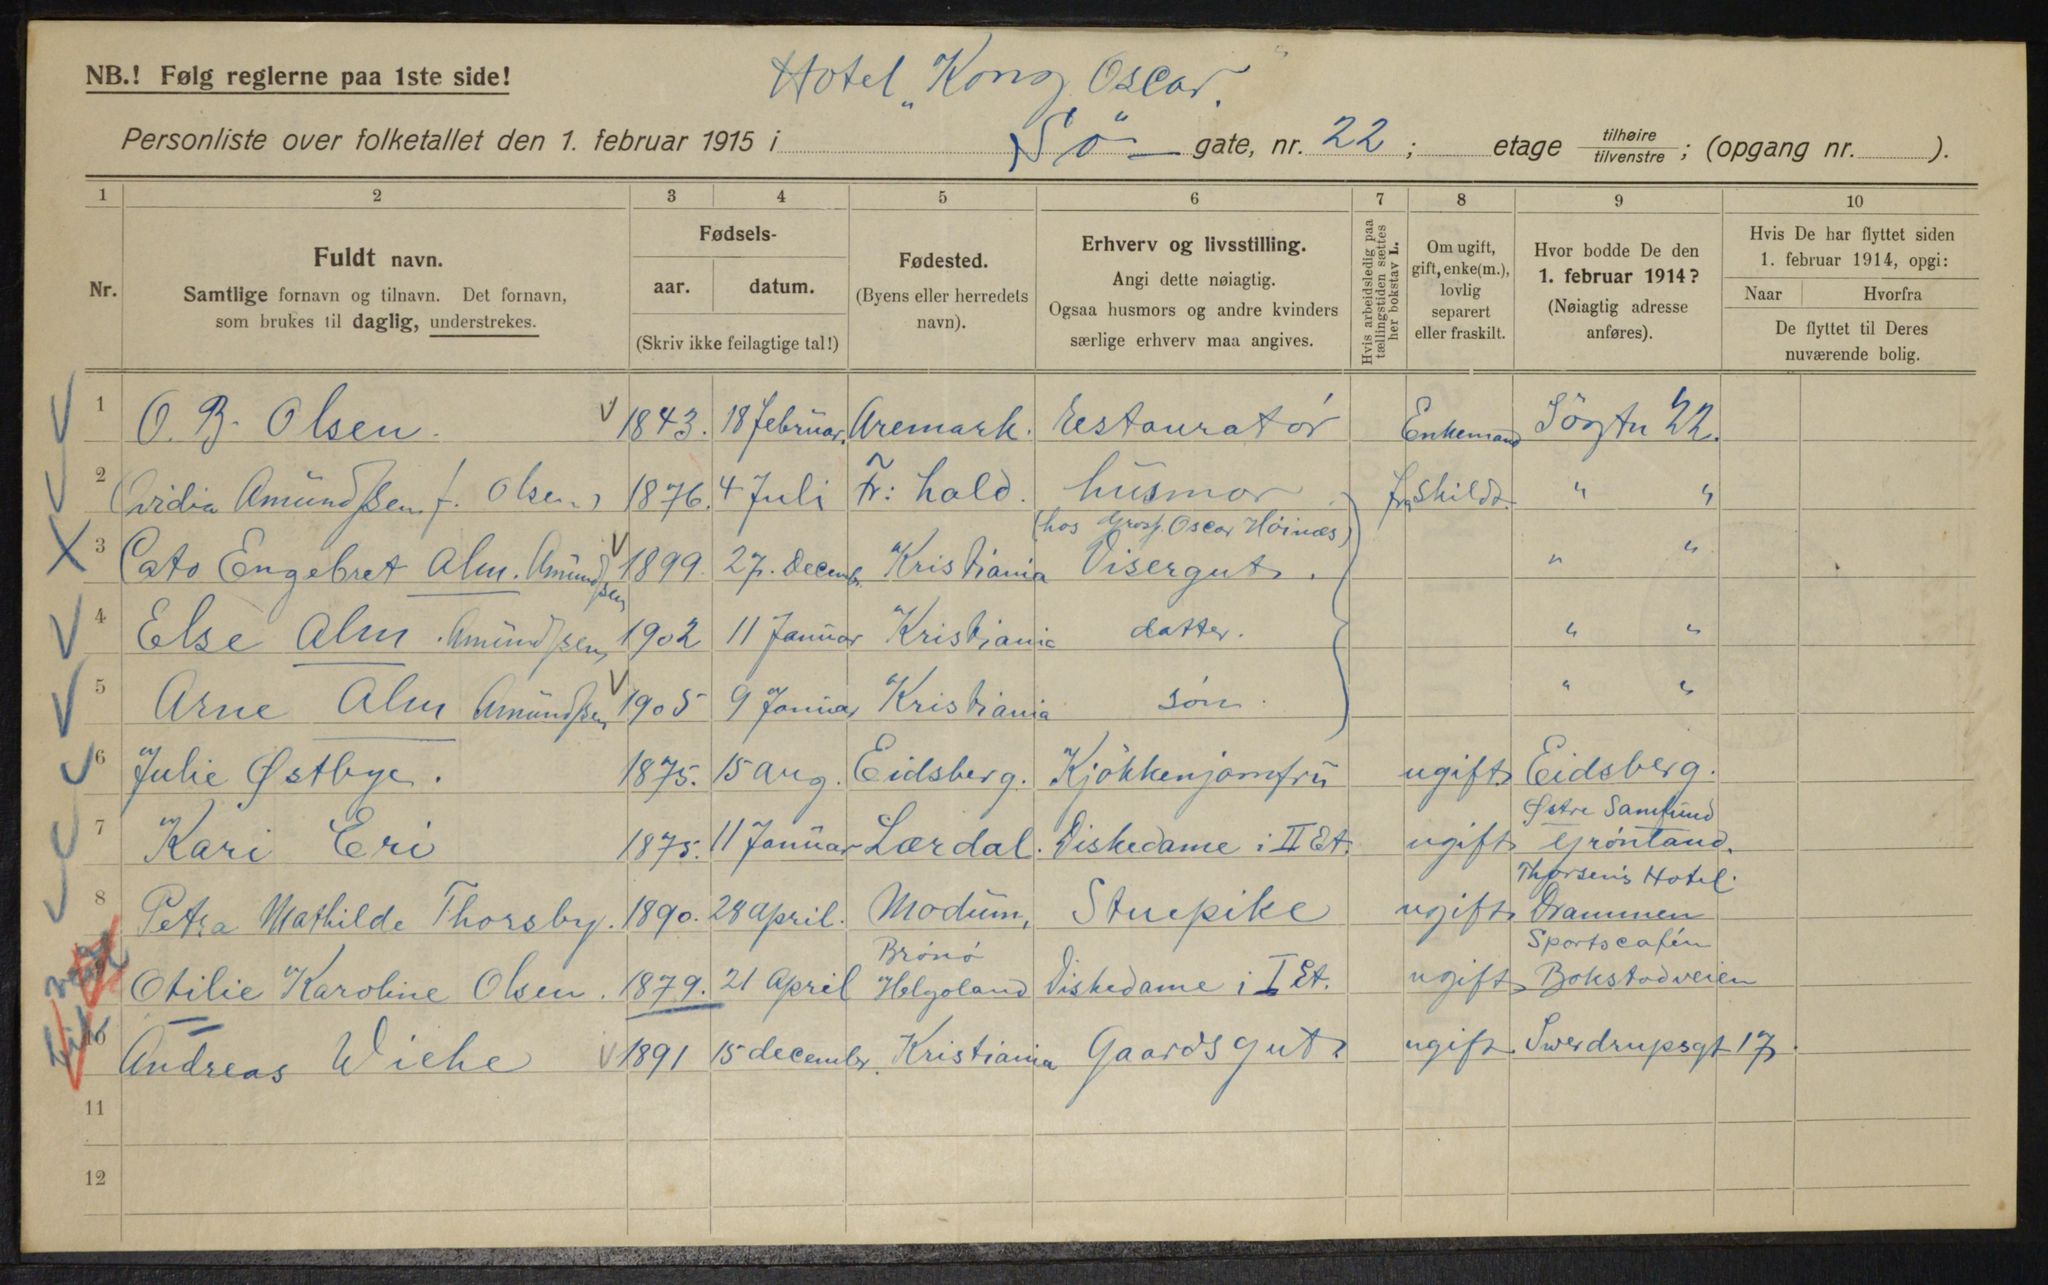 Hotel „Kong Oscar.“
NB.! Følg reglerne paa 1ste side!
Personliste over folketallet den 1. februar 1915 i Sö- gate, nr. 22; etage tilhøire / tilvenstre; (opgang nr. ).
1 2 3 4 5 6 7 8 9 10
Nr.
Fuldt navn.
Samtlige fornavn og tilnavn. Det fornavn,
som brukes til daglig, understrekes.
Fødsels-
aar. datum.
(Skriv ikke feilagtige tal!)
Fødested.
(Byens eller herredets
navn).
Erhverv og livsstilling.
Angi dette nøiagtig.
Ogsaa husmors og andre kvinders
særlige erhverv maa angives.
Hvis arbeidsledig paa
tællingstiden sættes
her bokstav L.
Om ugift,
gift, enke(m.),
lovlig
separert
eller fraskilt.
Hvor bodde De den
1. februar 1914?
(Nøiagtig adresse
anføres).
Hvis De har flyttet siden
1. februar 1914, opgi:
Naar Hvorfra
De flyttet til Deres
nuværende bolig.
1 O. B. Olsen. 1843. 18 februar. Aremark. restauratör Enkemand Sögtn 22.
2 Ovidia Amündssen f. Olsen 1876. 4 Juli Fr: hald. husmor fraskildt. " "
(hos Gross. Oscar Höinæs)
3 Cato Engebret Alm. Amündssen 1899. 27. Decembr. Kristiania Visergut. " "
4 Else Alm. Amündssen 1902 11 Januar Kristiania datter. " "
5 Arne Alm Amündssen 1905 9 Januar Kristiania sön. " "
6 Julie Østbye. 1875. 15 aug. Eidsberg. Kjökkenjomfrü ugift Eidsberg.
Østre Samfund
7 Kari Eri 1875. 11 Januar Lærdal. Diskedame i II Et. ugift Grönland.
Thorsens Hotel.
8 Petra Mathilde Thorsby. 1890. 28 april. Modum, Stuepike ugift Drammen
Brönö Sportscafén
9 Otilie Karoline Olsen. 1879. 21 April Helgoland Diskedame i I Et. ugift Bokstadveien
10 Andreas Wiehe 1891 15 decembr. Kristiania Gaardsgut. ugift. Swerdrupsgt 17.
11
12